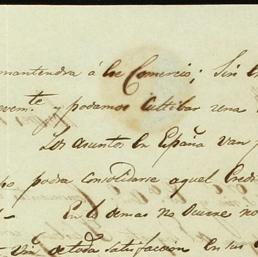 mantendra á los Comercio; Sin
vemte y podamos cultibar una
Los asuntos en España van
po podra consolidarse aquel Credi
En lo demas no ocurre no
Vm. de toda satisfaccion en sus